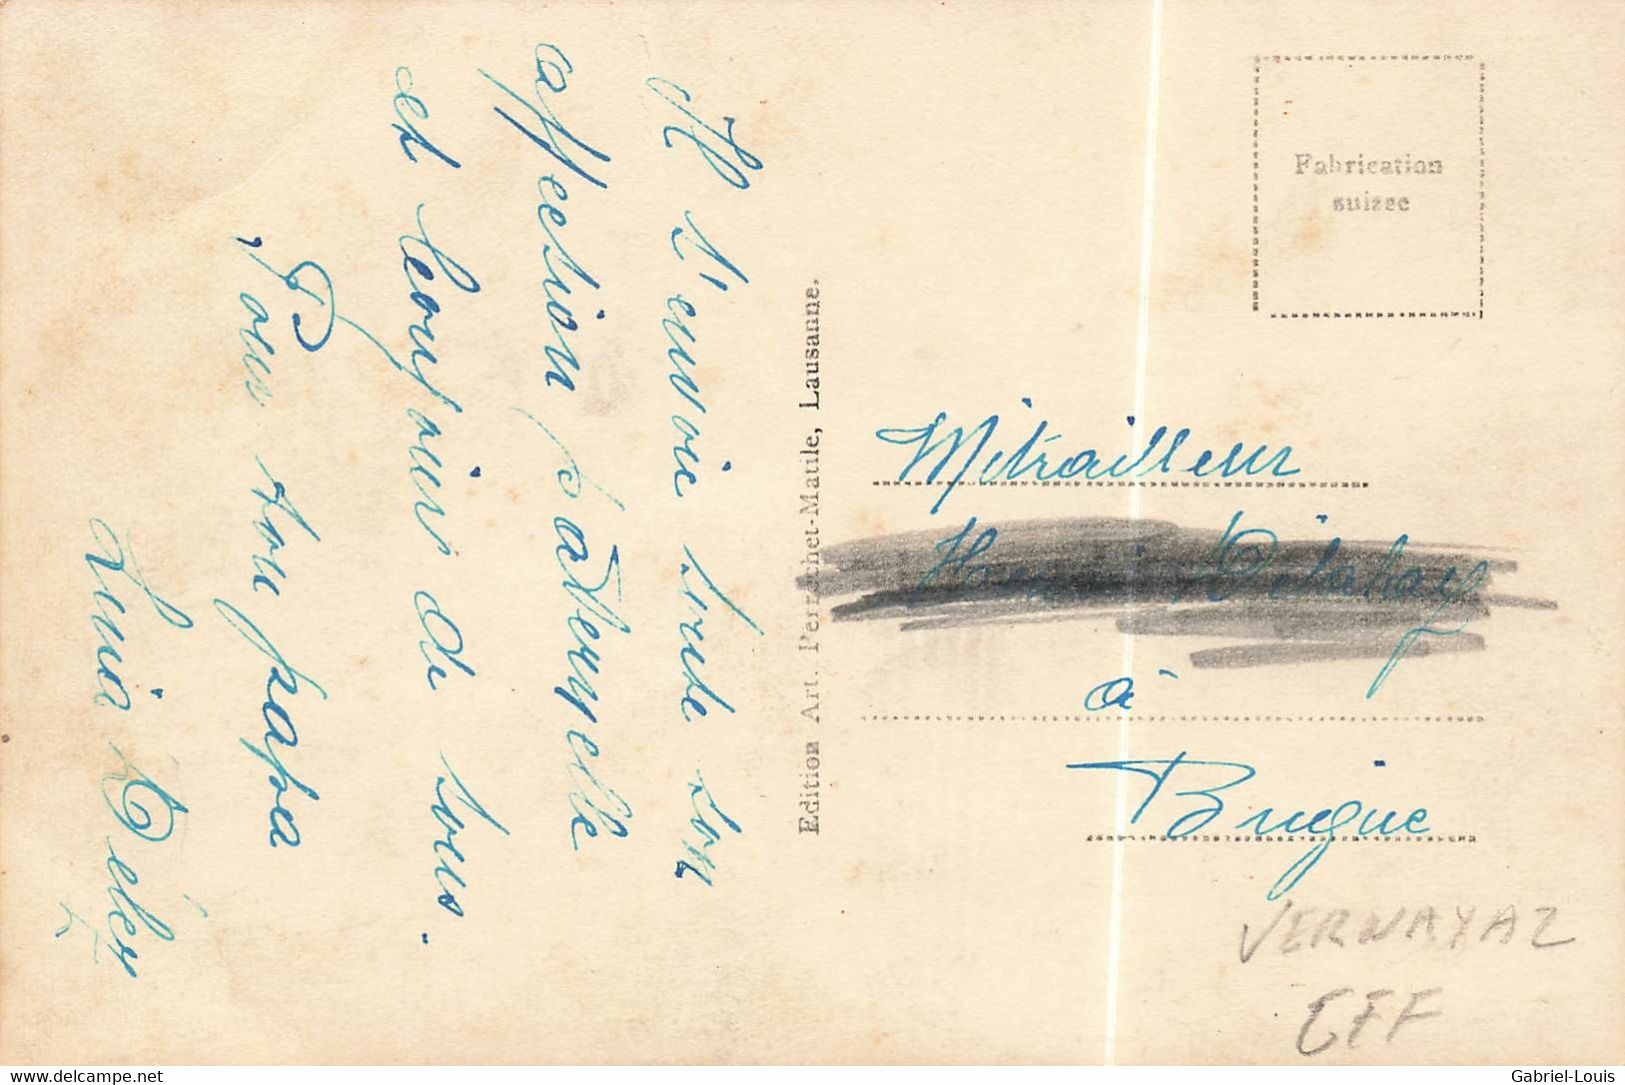 Il t'envoie toute son
affection paternelle
et toujours de tous.
Pour ton papa
Edition Art. Perrochet-Matile, Lausanne.
Fabrication
suisse
Mitrailleur
à
Brigue
VERNAYAZ
CFF
www.delcampe.net
Gabriel-Louis